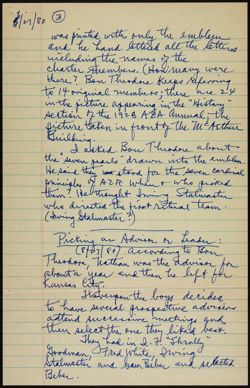 8/27/80 (3)
was printed with only the emblem
and he hand lettered all the letters
including the names of the
charter members. (How many were
there? Ben Theodore keeps referring
to 14 original members; there are 24
in the picture appearing in the "History"
section of the 1928 AZA Annual, the
picture taken in front of the McArthur
Building.
I asked Ben Theodore about
the "seven pearls" drawn into the emblem
He said they stood for the seven cardinal
principles of AZA. When & who picked
them? He thought Irving Stalmaster
who directed the first ritual team.
(Irving Stalmaster?)
Picking an Advisor or Leader:
(8/27/80) According to Ben
Theodore, Nathan was the Advisor for
about a year and then he left for
Kansas City.
the boys decided
to have several prospective advisors
attend successive meetings and
then select the one they liked best.
They had in I.F.
Goodman, Fred White, Irving
Stalmaster and Sam Beber and selected
Beber.